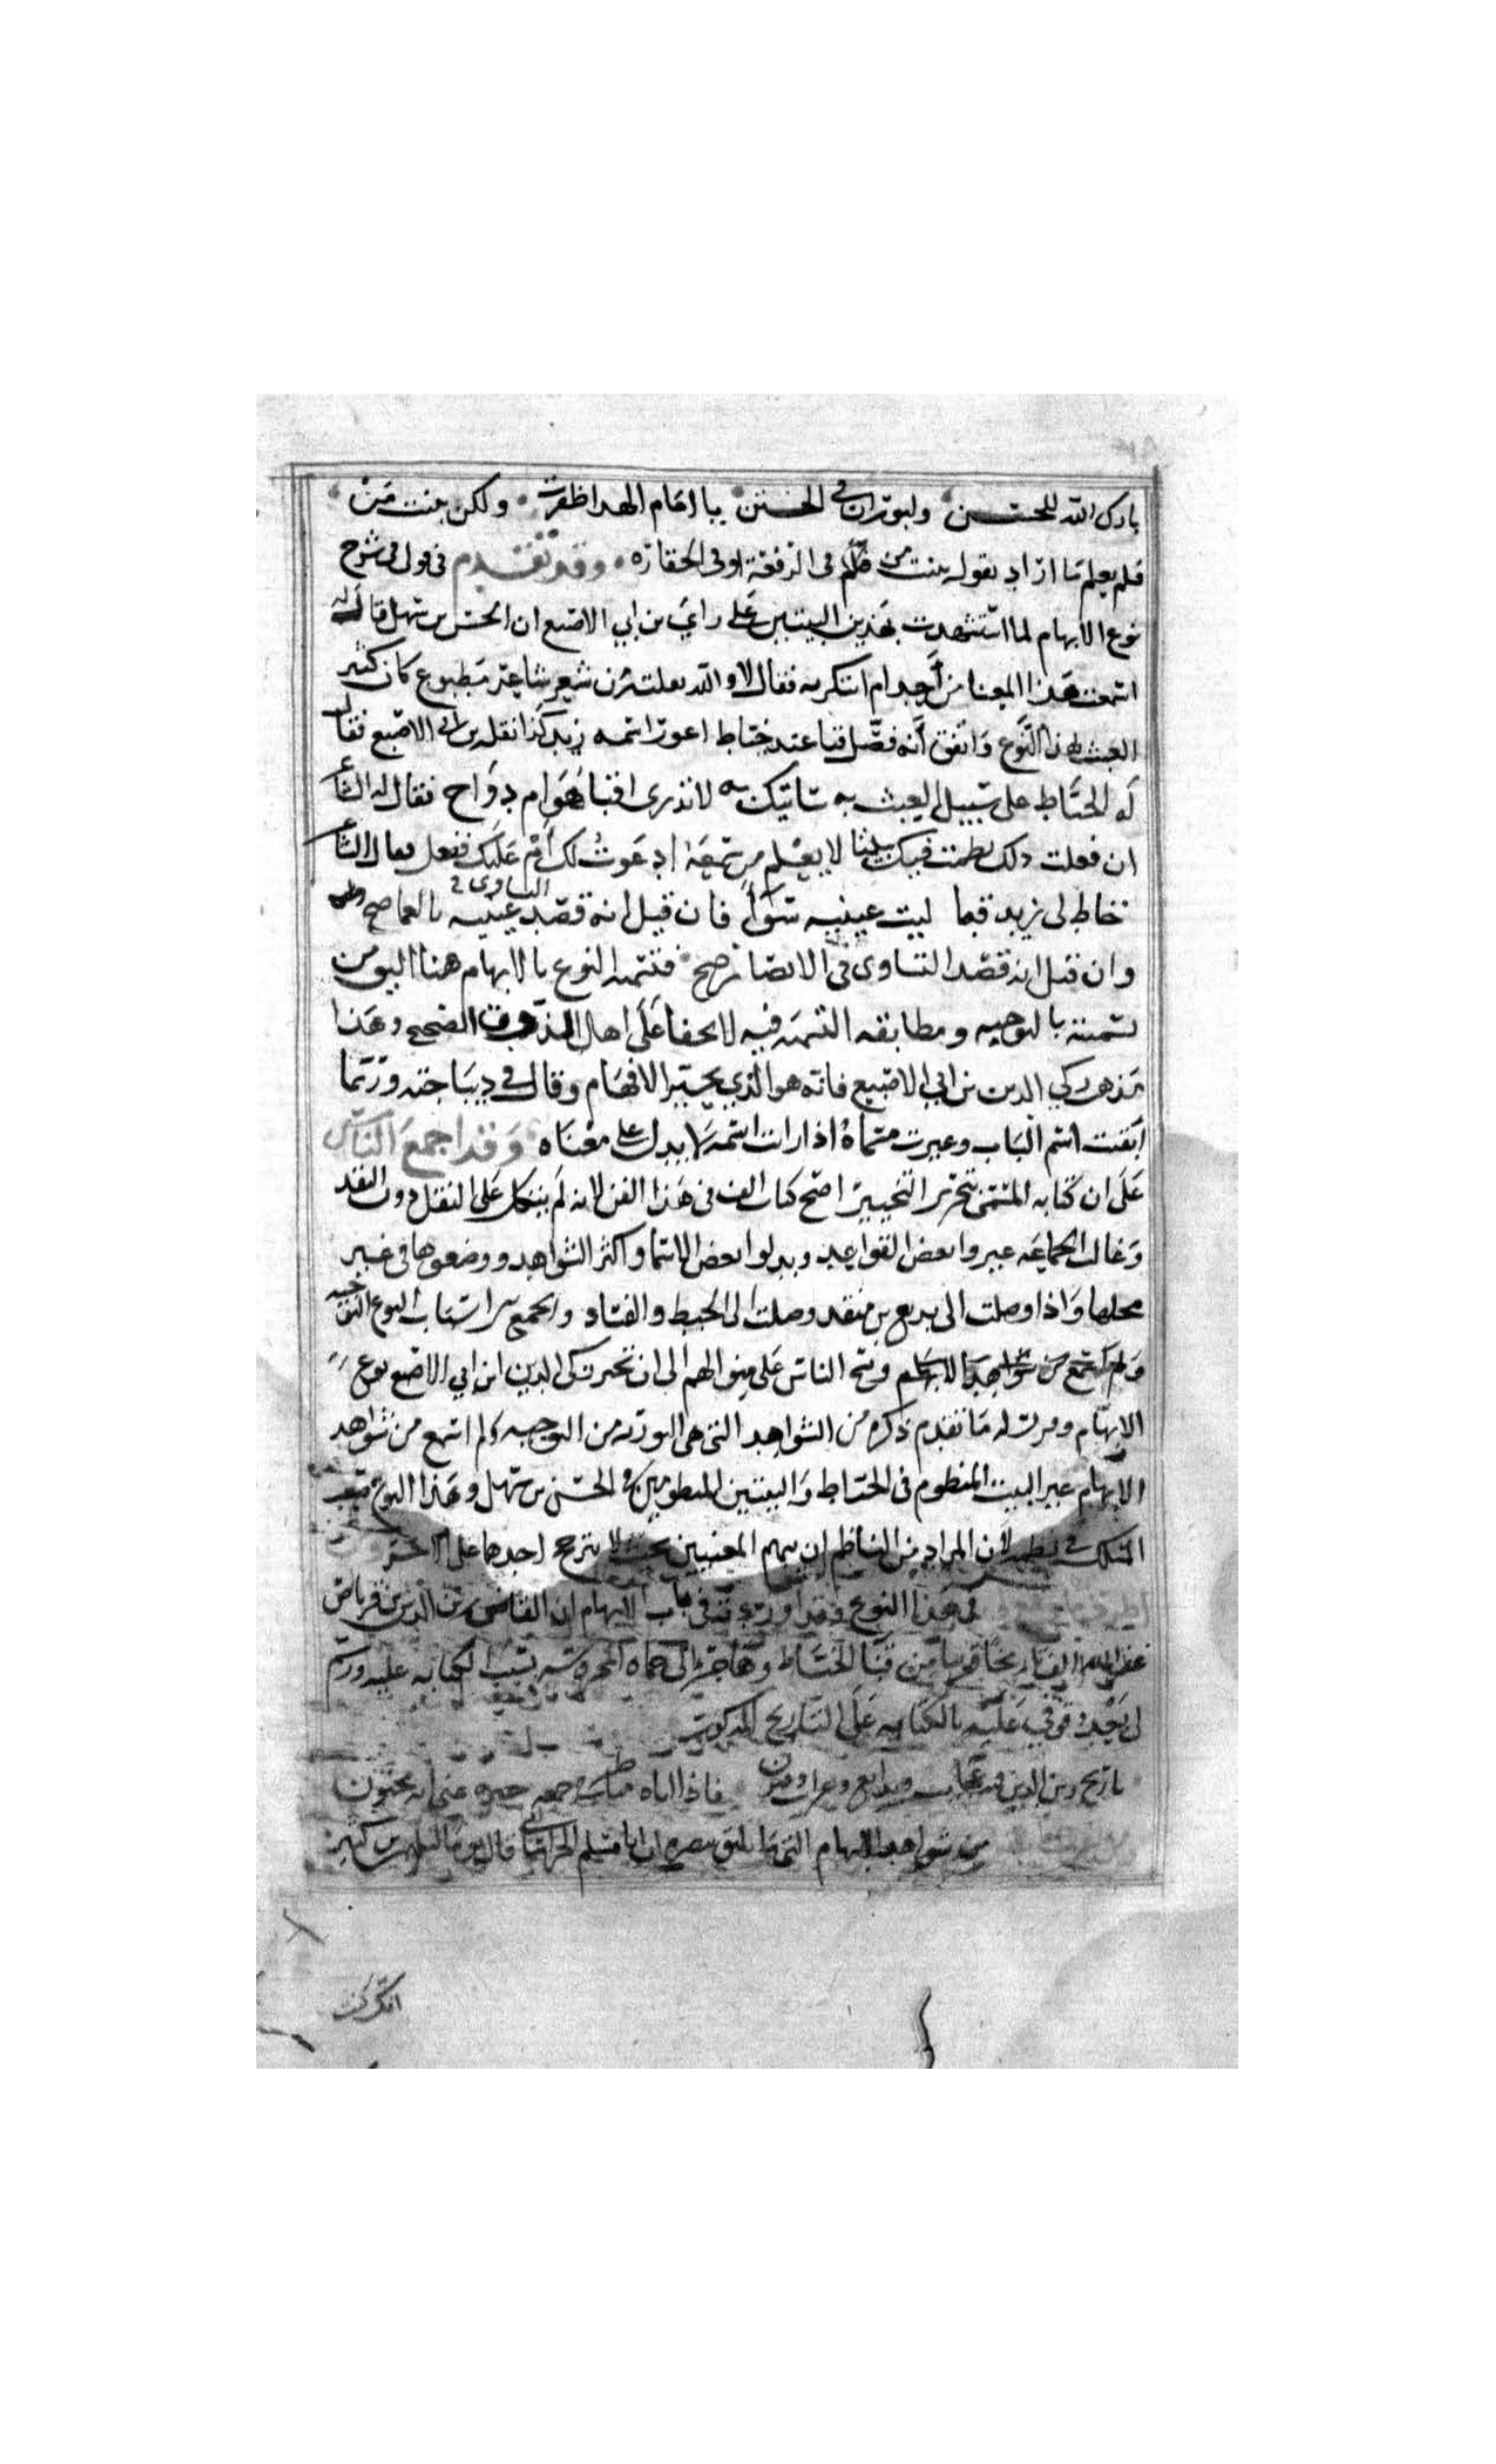 بارك الله للحسن ولبوران في الختن يا امام الهدا ظفرت ولكن ببنت من
فلم يعلم ما اراد بقوله ببنت من في الرفعة او في الحقارة وقد تقدم في شرح
نوع الابهام لما استشهدت بهذين البيتين على راي بن ابي الاصبع ان الحسن بن سهل قال له
اسمعت هذا المعنا من أحد ام ابتكرته فقال لا والله نقلته من شعر شاعر مطبوع كان كثير
العبث بهذا النوع واتفق أنه فصّل قبا عند خياط اعور اسمه زيد كذا نقله بن ابي الاصبع فقال
له الخياط على سبيل العبث به ساتيك به لا تدرى اقبا هو ام دواج فقال له الشاعر
ان فعلت ذلك نظمت فيك بيتا لا يعلم من سمعه ادعوت لك أم عليك ففعل فقال الشاعر
خاط لي زيد قبا ليت عينيه سوا فان قيل انه قصد التساوى في عينيه بالعما صح
وان قيل انه قصد التساوى في الابصار صح فتسمية النوع بالابهام هنا اليق من
تسميته بالتوجيه ومطابقة التسمية فيه لا تخفا على اهل الذوق الصحيح وهذا
مذهب زكي الدين بن ابي الاصبع فانه هو الذي تخير الابهام وقال في ديباجته وربما
ابقيت اسم الباب وغيرت مسماه اذا رايت اسمه لا يدل على معناه وقد اجمع الناس
على ان كتابه المسمى بتحرير التحبير اصح كتاب الف في هذا الفن لانه لم يتكل على النقل دون النقد
وغالب الجماعه غيروا بعض القواعد وبدلوا بعض الاسما واكثر الشواهد ووضعوها في غير
محلها واذا وصلت الى بديع بن منقذ وصلت الى الخبط والفساد والجمع من اشتات النوع التوجيه
ولم من شواهد الابهام ونسج الناس على منوالهم الى ان تخير زكي الدين ابن ابي الاصبع نوع
الابهام وقررت له ما تقدم ذكره من الشواهد التي هي من التوجيه ولم اسمع من شواهد
الابهام غير البيت المنظوم في الخياط والبيتين المنظومين في الحسن بن سهل وهذا النوع صعب
المسلك في نظمه لان المراد من الناظم ان يبهم المعنيين بحيث لا يترجح احدهما على الاخر
في هذا النوع وقد اوردته في باب الابهام ان القاضي زين الدين بن قرناص
غفر الله له الف تاريخا قريبا من قبا الخياط وهاجر الى حماه المحروسه بسبب الكتابه عليه ورسم
لي عليه بالكتابه على التاريخ المذكور
تاريخ زين الدين فيه عجايب وبدايع وغرايب وفنون فاذا اتاه في جمعه خبره عني انه مجنون
من شواهد الابهام التي ان ابا مسلم الخراساني قال يوما لسليمان بن كثير